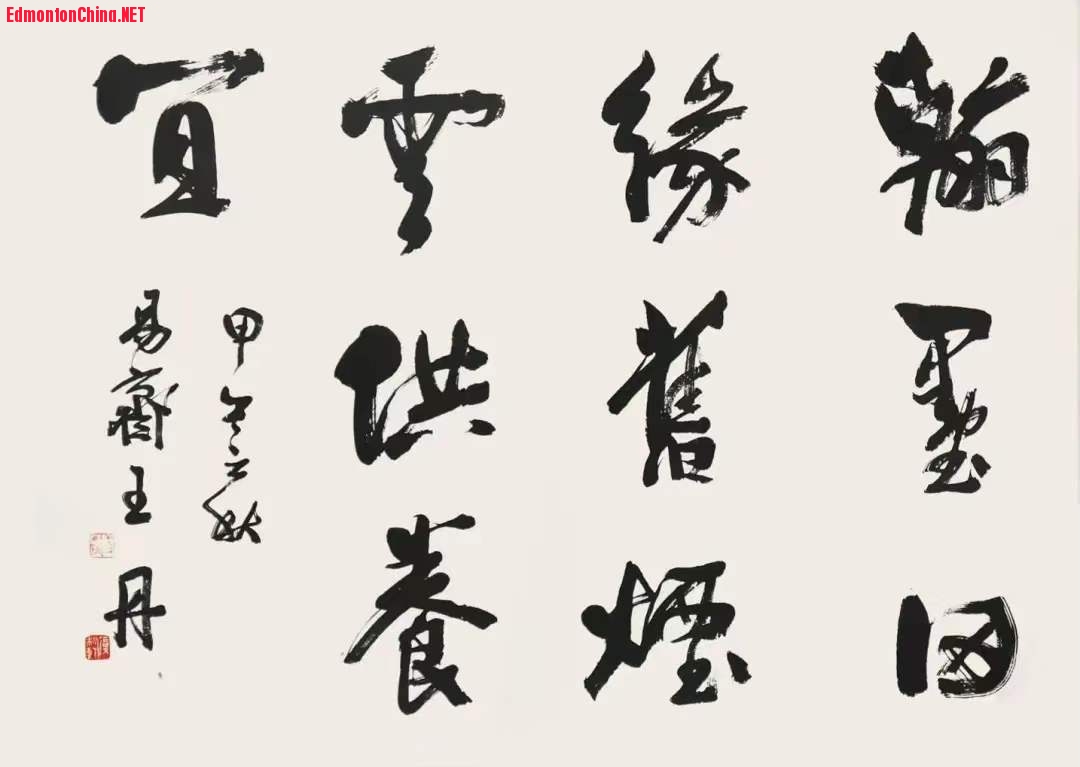 EdmontonChina.NET
翰墨因
緣舊煙
雲供養
宜
甲午之秋
易齋王丹